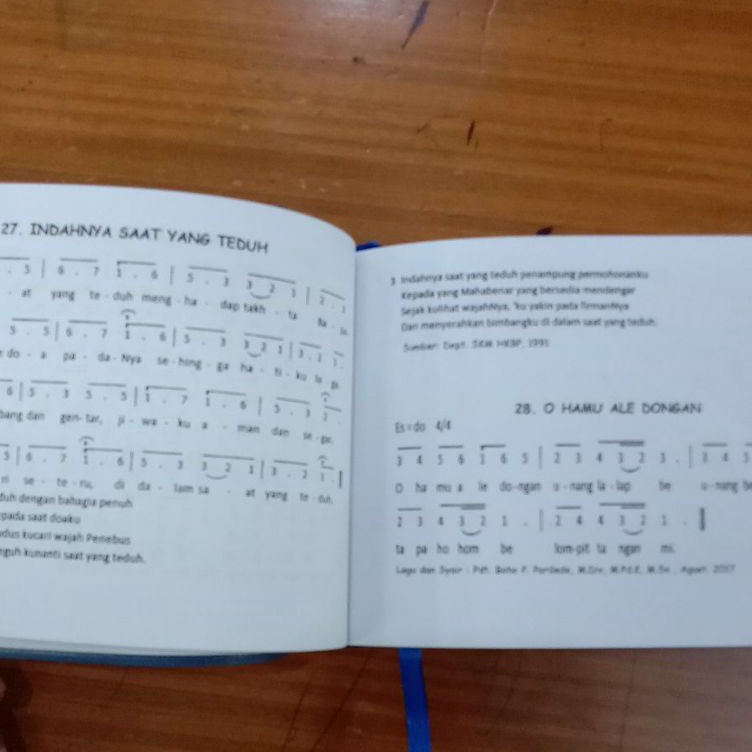 27. INDAHNYA SAAT YANG TEDUH
. 3 | 6 . 7 1 . 6 | 5 . 3 3 2 1 | 2 . 1
at yang te - duh meng - ha - dap takh - ta
5 . 5 | 6 . 7 1 . 6 | 5 . 3 3 2 1 | 3 . 2 1 .
do - a pa - da - Nya se - hing - ga ha - ti - ku
6 | 5 . 3 5 . 5 | 1 . 7 1 . 6 | 5 . 3 2 .
bang dan gen - tar, ji - wa - ku a - man dan se - ge.
5 | 6 . 7 1 . 6 | 5 . 3 3 2 1 | 3 . 2 1 .
ri se - te - ru, di da - lam sa - at yang te - duh.
duh dengan bahagia penuh
pada saat doaku
dus kucari wajah Penebus
guh kunanti saat yang teduh.
3 Indahnya saat yang teduh penampung permohonanku
Kepada yang Mahabenar yang bersedia mendengar
Sejak kulihat wajahNya, 'ku yakin pada firmanNya
Dan menyerahkan bimbangku di dalam saat yang teduh.
Sumber: Dept. HKBP, 1991
28. O HAMU ALE DONGAN
Es = do 4/4
3 4 5 6 1 6 5 | 2 3 4 3 2 3 . | 3 4 5
O ha mu a le do - ngan u - nang la - lap be u - nang be
2 3 4 3 2 1 . | 2 4 4 3 2 1 .
ta pa ho hom be lom - pit ta ngan mi.
Lagu dan Syair : Pdt. P. M.Div, M.Pd.K, M.Sn , 2017